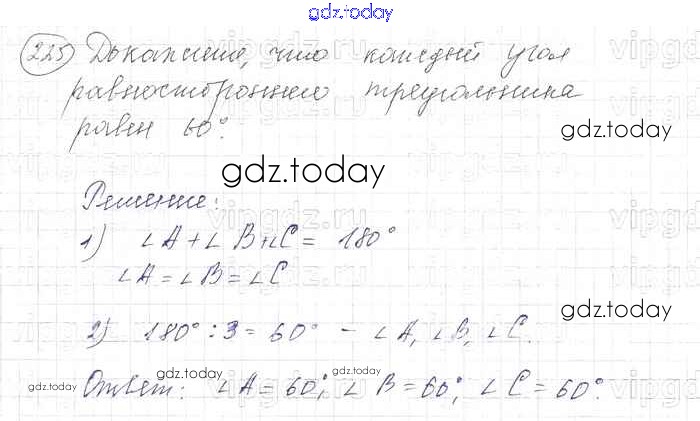 gdz.today
225 Докажите, что каждый угол
равностороннего треугольника
равен 60°.
gdz.today
gdz.today
Решение:
1) ∠A + ∠B + ∠C = 180°
∠A = ∠B = ∠C
gdz.today
2) 180° : 3 = 60° - ∠A, ∠B, ∠C.
gdz.today gdz.today gdz.today
Ответ: ∠A = 60°, ∠B = 60°, ∠C = 60°.